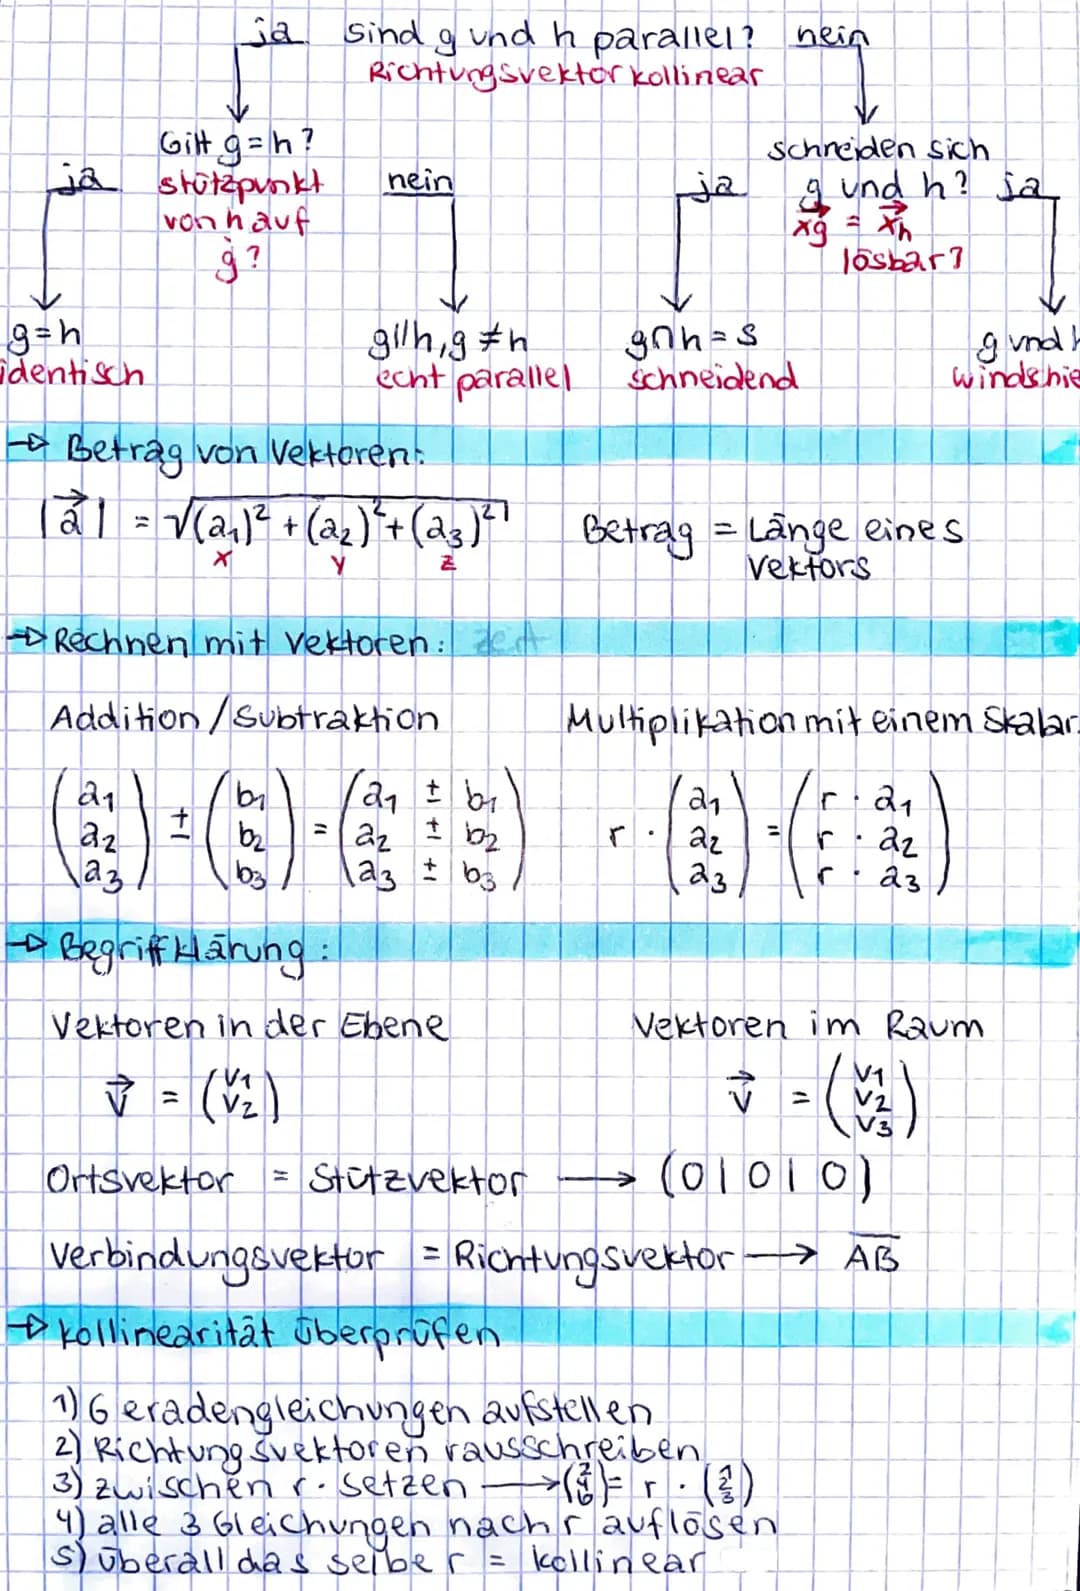 ja sind g und h parallel? nein
Richtungsvektor kollinear
Gilt g=h?
ja stützpunkt nein
von h auf
g?
schneiden sich
ja g und h? ja
xg = xh
lösbar?
g=h g//h, g≠h g∩h=S g und h
identisch echt parallel schneidend windschie
→ Betrag von Vektoren:
|a⃗| = √(a₁)² + (a₂)² + (a₃)² Betrag = Länge eines
x y z Vektors
→ Rechnen mit Vektoren:
Addition/Subtraktion Multiplikation mit einem Skalar
(a₁ a₂ a₃) ± (b₁ b₂ b₃) = (a₁ ± b₁ a₂ ± b₂ a₃ ± b₃) r · (a₁ a₂ a₃) = (r · a₁ r · a₂ r · a₃)
→ Begriffklärung:
Vektoren in der Ebene Vektoren im Raum
v⃗ = (v₁ v₂) v⃗ = (v₁ v₂ v₃)
Ortsvektor = Stützvektor → (0|0|0)
Verbindungsvektor = Richtungsvektor → AB
→ kollinearität überprüfen
1) Geradengleichungen aufstellen
2) Richtungsvektoren rausschreiben
3) zwischen r· setzen → (2 4 6) = r · (1 2 3)
4) alle 3 Gleichungen nach r auflösen
5) überall das selbe r = kollinear